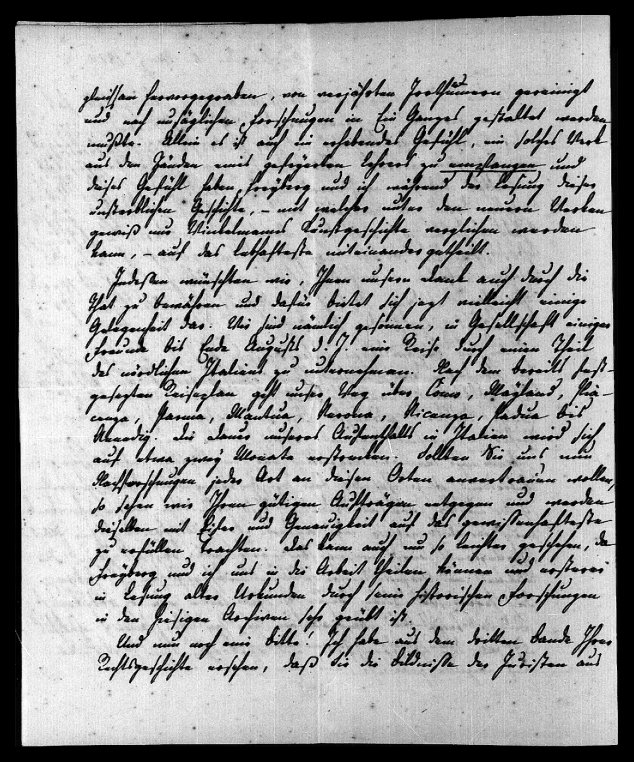 gleichsam hervorgegraben, von verjährten Irrthümern gereinigt
und nach unsäglichen Forschungen in Ein Ganzes gestaltet werden
mußte. Allein es ist auch ein erhebendes Gefühl, ein solches Werk
aus den Händen eines gefeyerten Lehrers zu empfangen und
dieses Gefühl haben Freyberg und ich während der Lesung dieser
unsterblichen Geschichte, – mit welcher unter den neuern Werken
gewiß nur Winkelmanns Kunstgeschichte verglichen werden
kann, – auf das lebhafteste miteinander getheilt.
Indeßen wünschten wir, Ihnen unsern Dank auch durch die
That zu bewähren und dafür bietet sich jezt vielleicht einige
Gelegenheit dar. Wir sind nämlich gesonnen, in Gesellschaft einiger
Freunde bis Ende Augusts d. J. eine Reise durch einen Theil
des nördlichen Italiens zu unternehmen. Nach dem bereits fest-
gesezten Reiseplan geht unser Weg über Como, Mayland, Pia-
cenza, Parma, Mantua, Verona, Vicenza, Padua bis
Venedig. Die Dauer unseres Aufenthalts in Italien wird sich
auf etwa zwey Monate erstrecken. Sollten Sie uns nun
Nachforschungen jeder Art an diesen Orten anvertrauen wollen,
so sehen wir Ihren gütigen Aufträgen entgegen und werden
dieselben mit Eifer und Genauigkeit auf das gewissenhafteste
zu erfüllen trachten. Das kann auch um so leichter geschehen, da
Freyberg und ich uns in die Arbeit theilen können und ersterer
in Lesung alter Urkunden durch seine historischen Forschungen
in den hiesigen Archiven sehr geübt ist.
Und nun noch eine Bitte! Ich habe aus dem dritten Bande Ihrer
Rechtsgeschichte ersehen, daß Sie die Bildnisse der Juristen aus